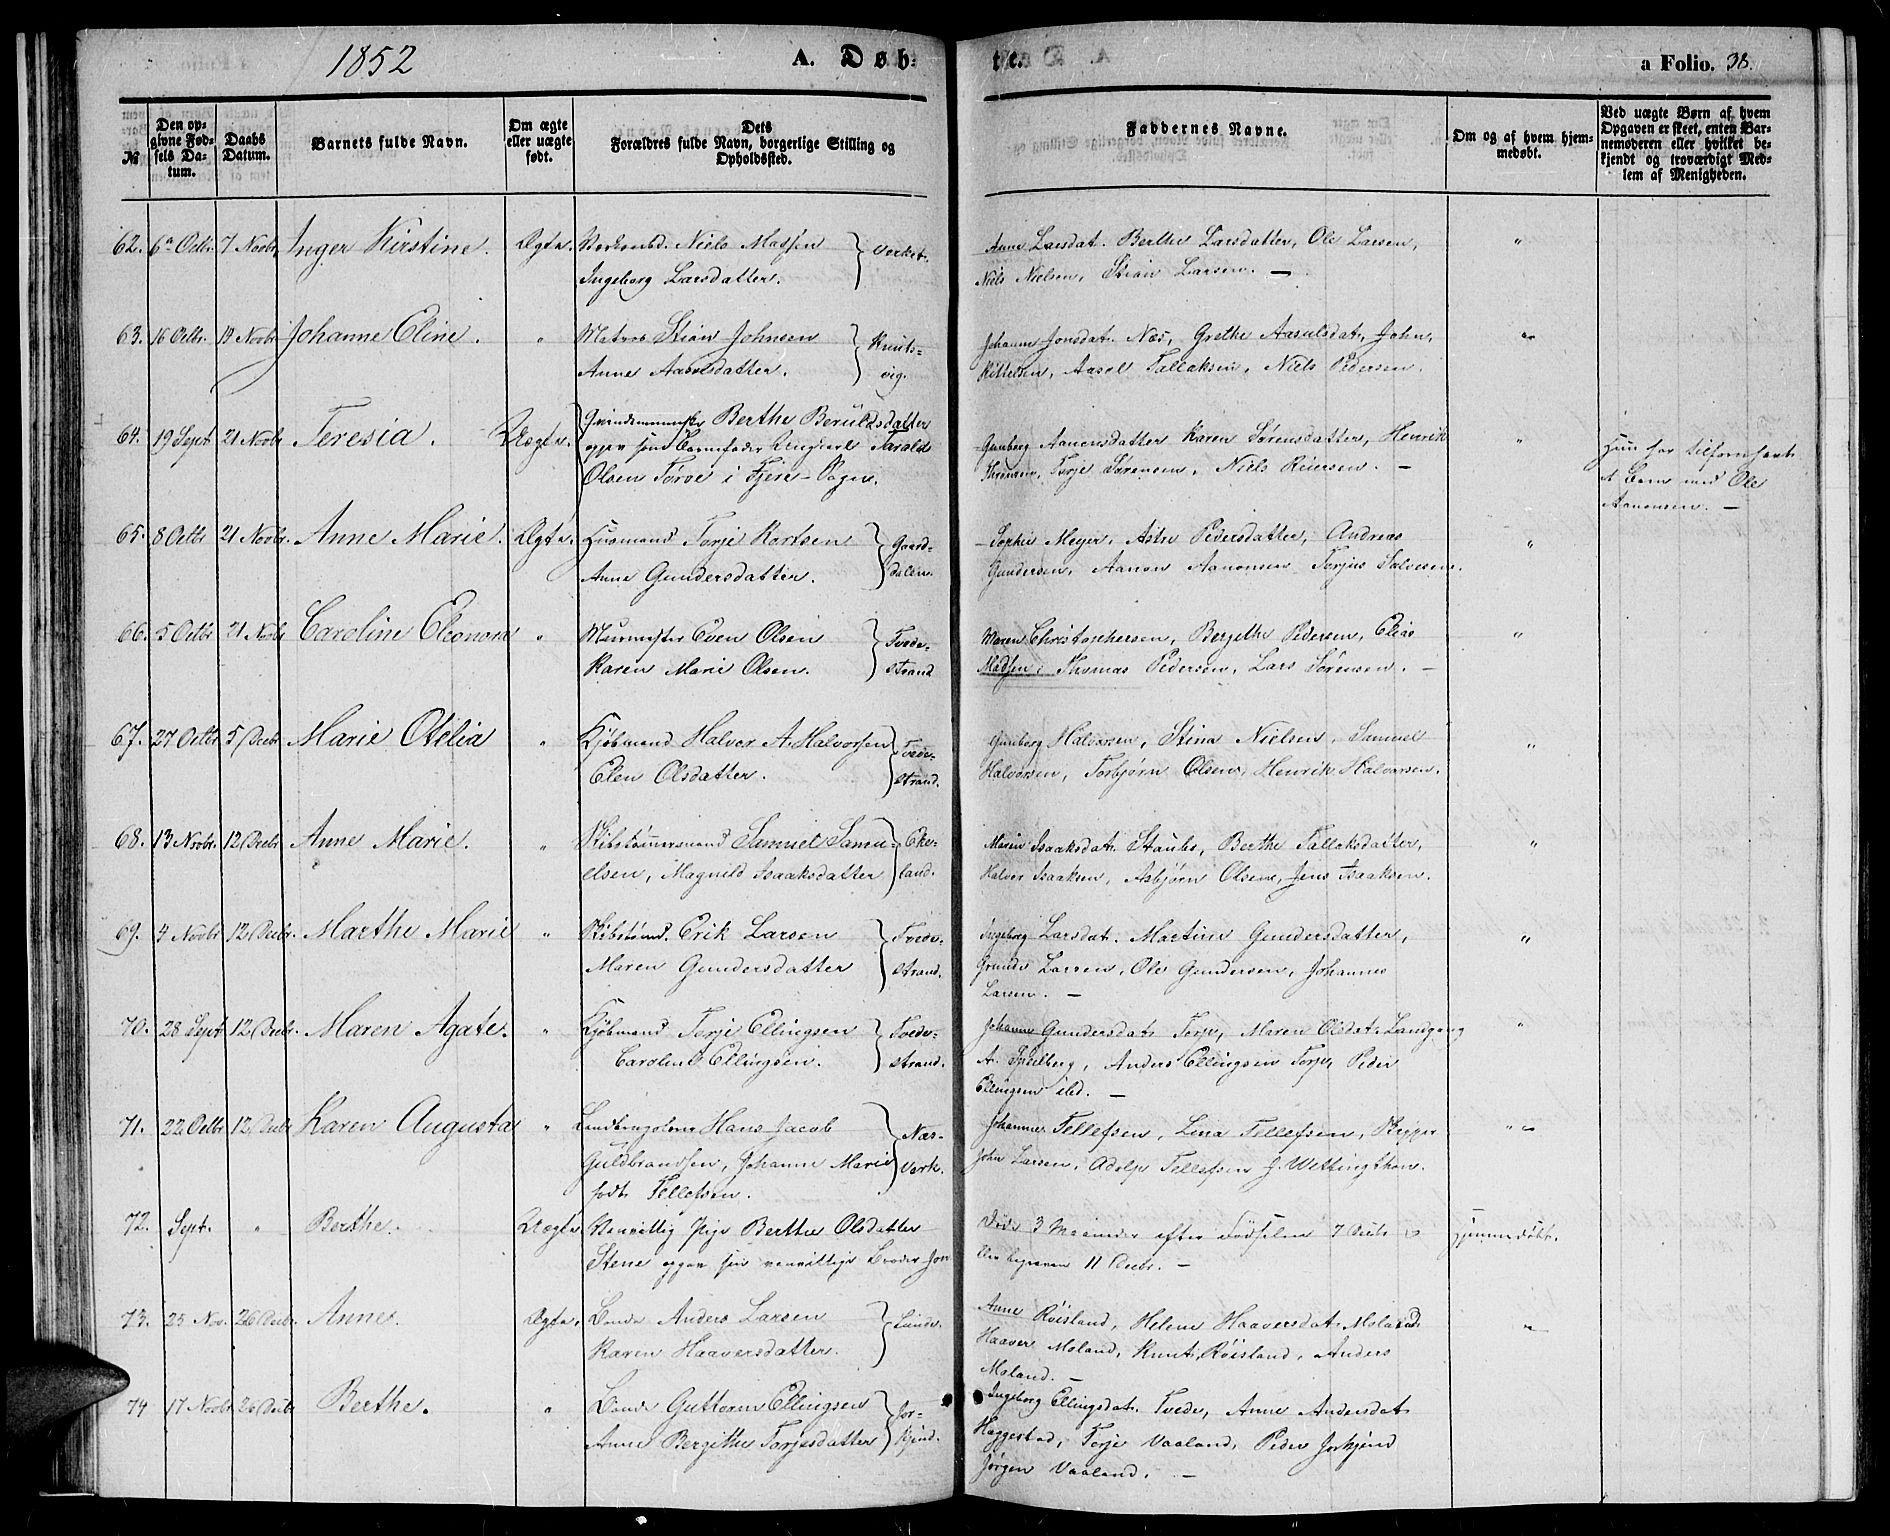 1852
A. Døb-
te.
a Folio. 38.
№
Den op-
givne Fød-
sels Da-
tum.
Daabs
Datum.
Barnets fulde Navn.
Om ægte
eller uægte
født.
Dets
Forældres fulde Navn, borgerlige Stilling og
Opholdssted.
Faddernes Navne.
Om og af hvem hjem-
medøbt.
Ved uægte Børn af hvem
Opgaven er skeet, enten Bar-
nemoderen eller hvilket be-
kjendt og troværdigt Med-
lem af Menigheden.
62. 6 Octbr. 7 Novbr. Inger Kirstine. Ægte. Niels Massen Verket.
Ingeborg Larsdatter.
Anne Larsdat. Berthe Larsdatter, Ole Larsen,
Niels Nielsen, Stian Larsen. —
63. 16 Octbr. 19 Novbr Johanne Eline. " Matros Stian Johnsen Knuts-
Anne Aasulsdatter. vig.
Johanne Jonsdat. Næs, Grethe Aasulsdat, John
Kittelsen, Aasol Tallaksen, Niels Pedersen.
64. 19 Sept 21 Novbr Teresia. Uægte. Qvindemenneske Berthe Beruldsdatter
opgav som Barnefader Ungkarl Tarald
Olsen Torve i Fjere-Sogn.
Gunborg Aanonsdatter Karen Sørensdatter, Henrik
Thronsen, Torje Sørensen, Niels Reiersen. —
Hun har tilforn havt
et Barn med Ole
Aanonsen. —
65. 8 Octbr 21 Novbr. Anne Marie. Ægte. Husmand Torje Kortsen Gaard-
Anne Gundersdatter. dalen.
Sophie Meyer, Astri Pedersdatter, Andreas
Gundersen, Aanon Aanonsen, Torjus Salvesen.
66. 5 Octbr 21 Novbr Caroline Eleonore " Muurmester Even Olsen Tvede-
Karen Marie Olsen. strand
Maren Christophersen, Bergithe Pedersen, Elias
Madsen, Thomas Pedersen, Lars Sørensen. —
67. 27 Octbr 5 Decbr Marie Otelia " Kjøbmand Halvor A. Halvorsen Tvede-
Elen Olsdatter. strand.
Gunborg Halvorsen, Stina Nielsen, Samuel
Halvorsen, Torbjørn Olsen, Henrik Halvorsen.
68. 13 Novbr. 12 Decbr Anne Marie. " Skibstømmermand Samuel Samu- Eke-
elsen, Magnild Isaaksdatter land.
Maren Isaaksdat. Staubø, Berthe Tallaksdatter,
Halvor Isaaksen, Asbjørn Olsen, Jens Isaaksen.
69. 4 Novbr 12 Decbr. Marthe Marie " Skibstømd. Erik Larsen Tvede-
Maren Gundersdatter strand.
Ingeborg Larsdat. Martine Gundersdatter,
Grunde Larsen, Ole Gundersen, Johannes
Larsen. —
70. 28 Sept 12 Decbr. Maren Agate. " Kjøbmand Torje Ellingsen Tvede-
Caroline Ellingsen. strand.
Johanne Gundersdat. Torp, Maren Olsdat. Landgang
A. Spilberg, Anders Ellingsen Torp, Peder
Ellingsen ibd. —
71. 22 Octbr 12 Decbr Karen Augusta " Hans Jacob Næs-
Guldbrandsen, Johanne Marie Verk.
født Tellefsen.
Johanne Tellefsen, Lina Tellefsen, Skipper
John Larsen, Adolp Tellefsen J. Wettingthon.
72. Sept. " Berthe. Uægte. Vanvittig Pige Berthe Olsdatter
Stene opgav sin vanvittige Broder Jon
Døde 3 Maaneder efter Fødselen 7 Decbr
blev begraven 11 Decbr. —
Hjemmedøbt.
73. 25 Nov. 26 Decbr. Anne. Ægte. Bonde Anders Larsen Lunde.
Karen Haaversdatter.
Anne Røisland, Helene Haaversdat. Moland
Haaver Moland, Knut Røisland, Anders
Moland. —
74 17 Novbr 26 Decbr Berthe. " Bonde Guttorm Ellingsen Jor-
Anne Bergithe Torjesdatter kjend.
Ingeborg Ellingsdat. Tvede, Anne Andersdat
Haggestad, Torje Vaaland, Peder Jorkjend
Jørgen Vaaland. —